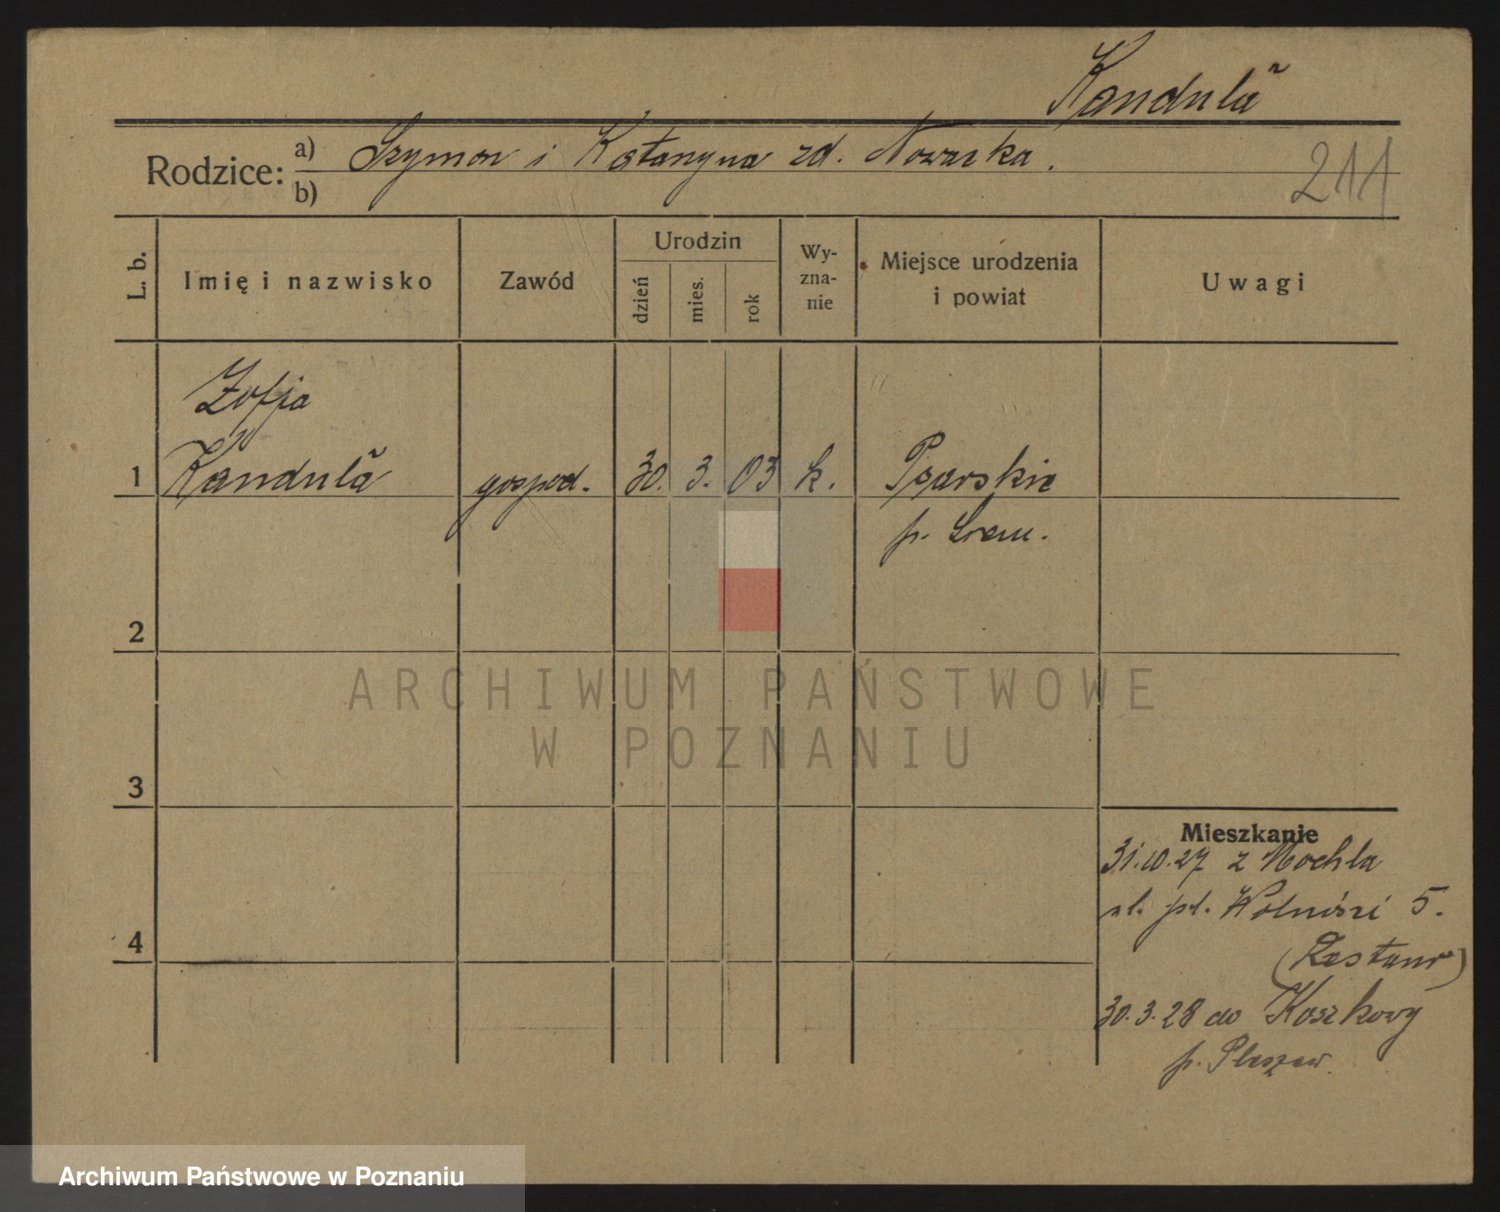 Kandula
Rodzice: a) Szymon i Katarzyna zd. Nowacka.
b)
211
L. b.
Imię i nazwisko
Zawód
Urodzin
dzień
mies.
rok
Wy-
zna-
nie
Miejsce urodzenia
i powiat
Uwagi
Zofja
1 Kandula gospod. 30. 3. 03 k. Psarskie
p. Śrem.
2
3
4
Mieszkanie
31.10.27 z Mochla
ul. pl. Wolności 5.
30.3.28 do Koszkowy
p. Pleszew
ARCHIWUM PAŃSTWOWE
W POZNANIU
Archiwum Państwowe w Poznaniu